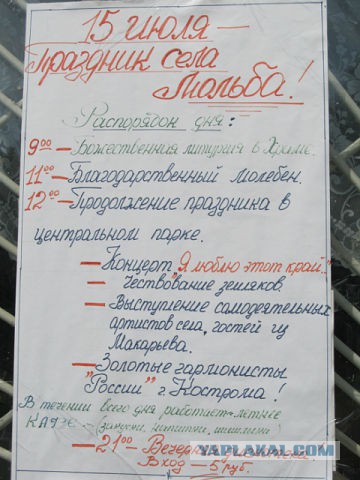 15 июля —
Праздник села
Мольба!
Распорядок дня:
9⁰⁰ — Божественная литургия в Храме.
11⁰⁰ — Благодарственный молебен.
12⁰⁰ — Продолжение праздника в
центральном парке.
— Концерт "Я люблю этот край.."
— Чествование земляков
— Выступление самодеятельных
артистов села, гостей из
Макарьева.
— Золотые гармонисты
"России" г. Кострома!
В течении всего дня работает летнее
КАФЕ — (закуски, напитки, шашлыки)
— 21⁰⁰ —
Вход — 5 руб.
YAPLAKAL.COM